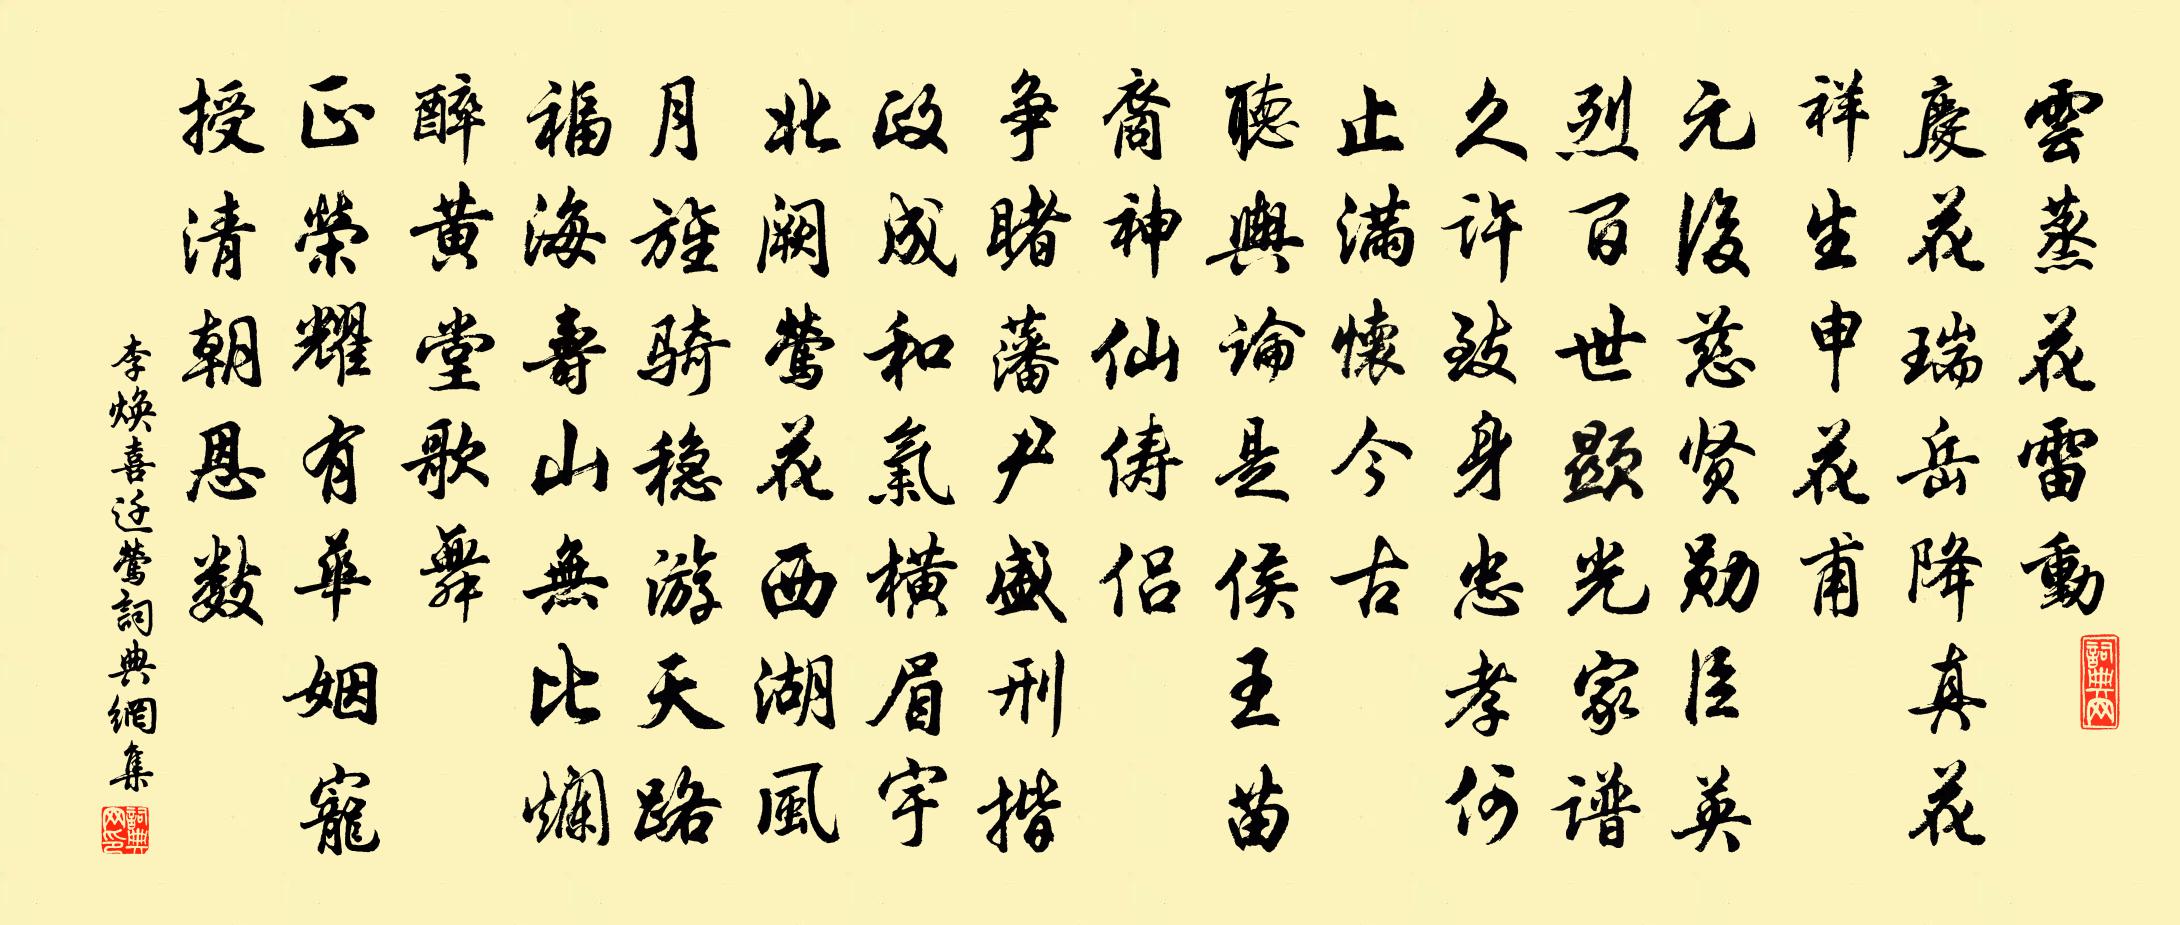 雲蒸花雷動
慶花瑞岳降真花
祥生申花甫
元後慈贤勛臣英
烈百世顯光家譜
久許致身忠孝何
止滿懷今古
聽輿論是侯王苗
裔神仙俦侣
争睹藩尹盛刑揩
政成和氣横眉宇
北阙莺花西湖風
月旌骑稳游天路
福海壽山無比爛
醉黄堂歌舞
正榮耀有華姻寵
授清朝恩数
李焕喜迁莺詞典網集
詞典网
詞典网印